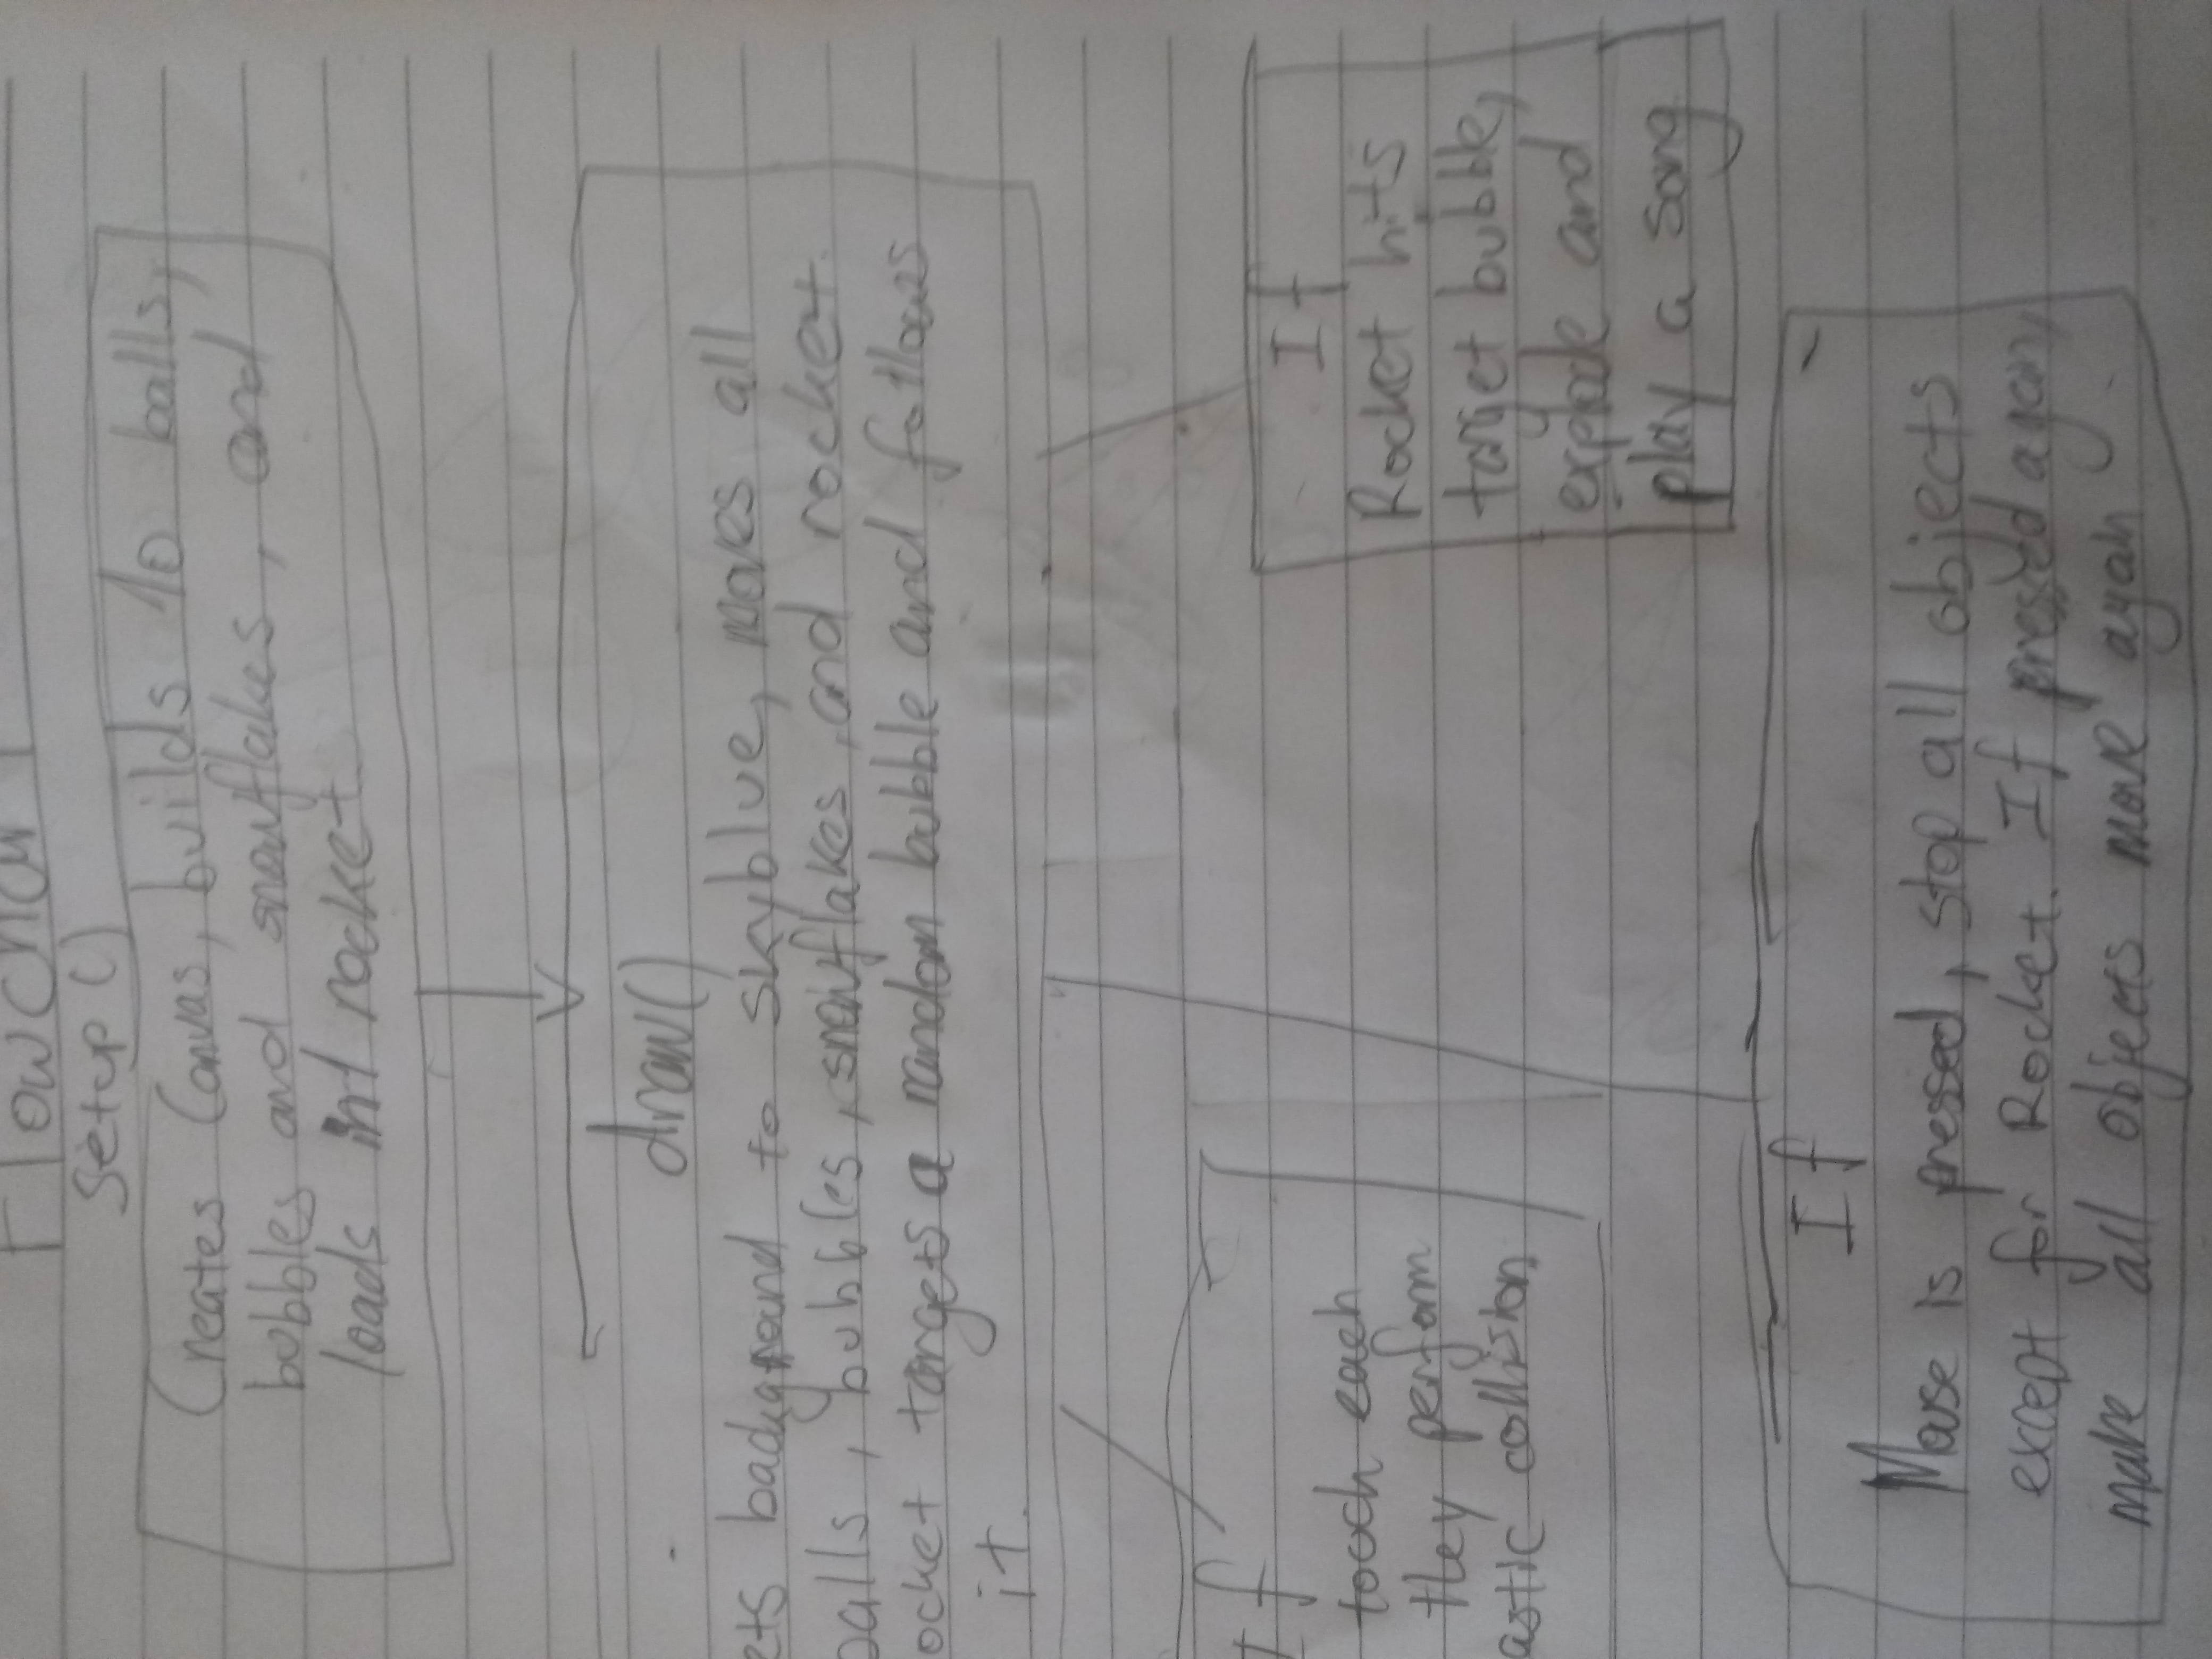 Flowchart
Setup()
Creates Canvas, builds 10 balls,
bubbles and snowflakes, and
loads in 1 rocket
draw()
ets background to skyblue, moves all
balls, bubbles, snowflakes, and rocket.
ocket targets a random bubble and follows
it.
If
touch each
they perform
astic collision
If
Rocket hits
target bubble,
explode and
play a song
If
Mouse is pressed, stop all objects
except for Rocket. If pressed again,
make all objects move again